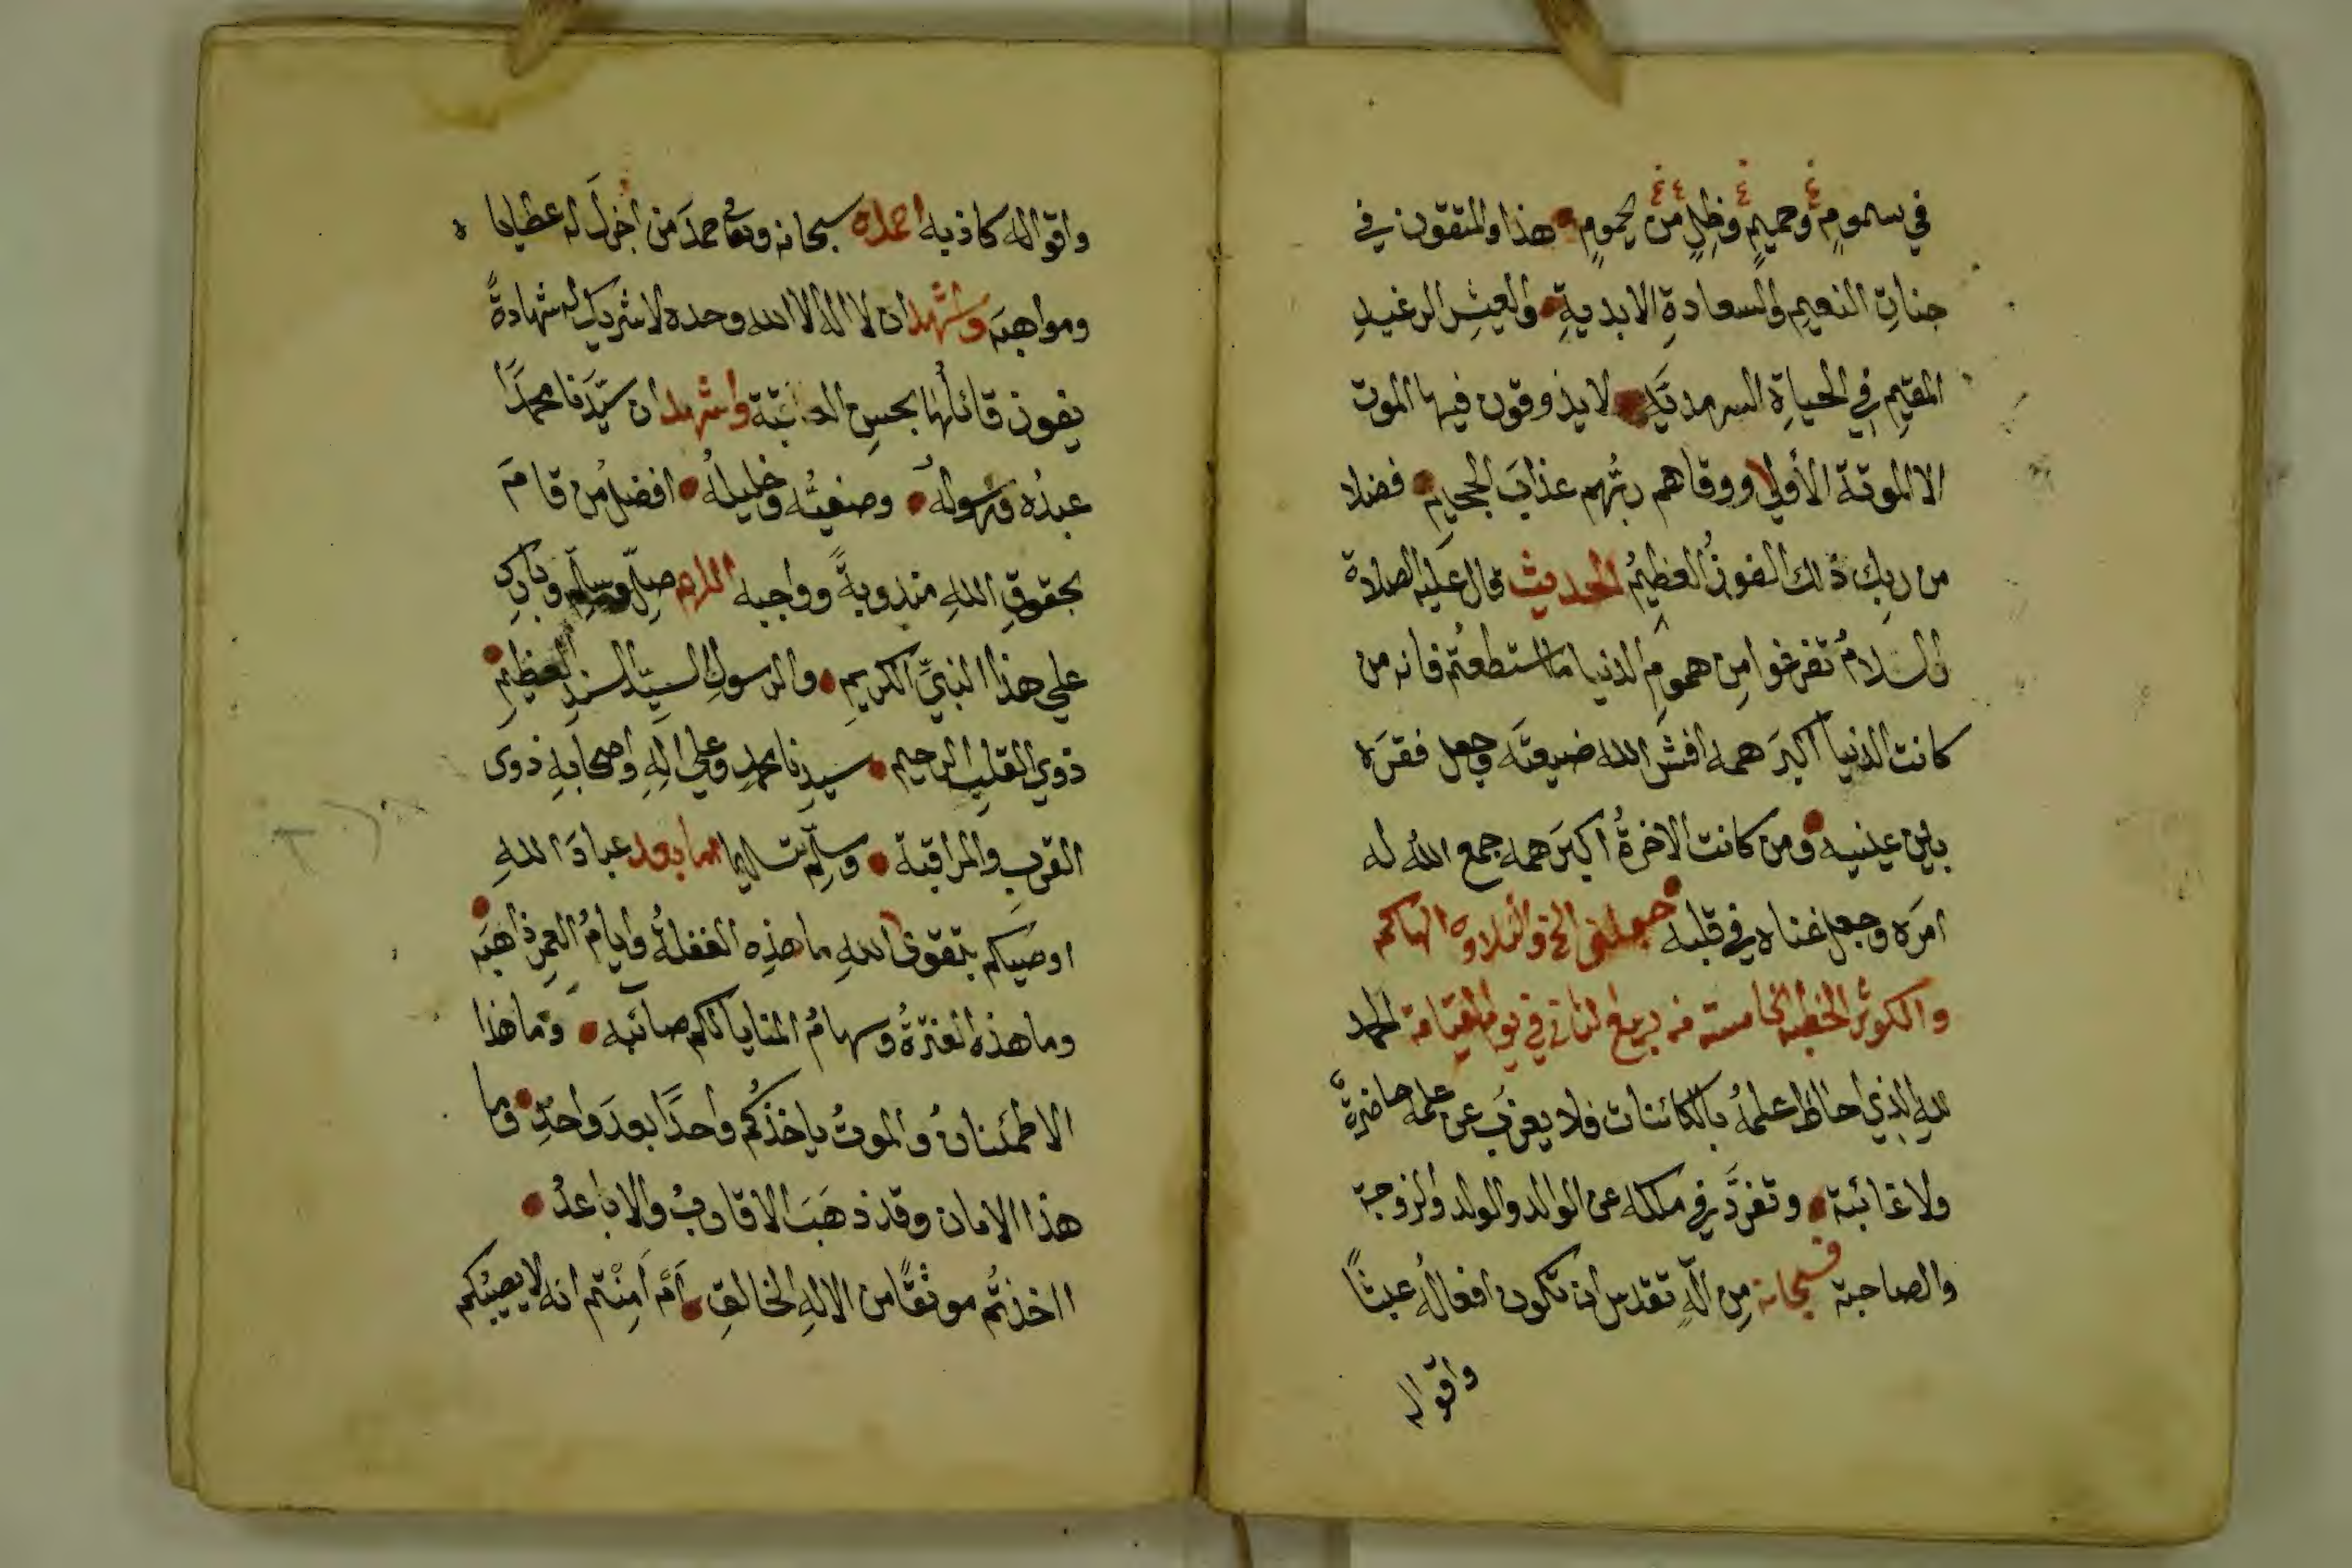 في سمومٍ وحميمٍ وظلٍ من يحمومٍ هذا والمتقون في
جناتِ النعيمِ والسعادةِ الابديةِ والعيشِ الرغيدِ
المقيمِ في الحياةِ السرمديَّةِ لا يذوقون فيها الموت
الا الموتة الأولي ووقاهم ربُّهم عذابَ الجحيمِ فضلا
من ربك ذلك الفوزُ العظيمُ الحديث قال عليه الصلاة
والسلامُ تفرغوا مِن همومِ الدنيا ما استطعتُم فانه من
كانت الدنيا اكبرَ همه افشى الله ضيعتَه وجعل فقرَه
بين عينيه ومن كانت الاخرةُ اكبرَ همه جمع اللهُ له
امرَه وجعل غناه في قلبه جعلني الخ والتلاوة الهاكم
والكوثر الخطبة الخامسة من ربيع الثاني في يوم القيامة الحمد
للهِ الذي احاط علمُه بالكائنات فلا يعزبُ عن علمه حاضرةٌ
ولا غائبة وتفرَّد في ملكه عن الوالد والولد والزوجة
والصاحبة فسبحانه مِن الٰهٍ تقدس ان تكون افعالُه عبثًا
واقواله
واقواله كاذبه احمده سبحانه وتعا حمدَ من اجزلَ له عطايا ه
ومواهبَه واشهد ان لا اله الا الله وحده لا شريك له شهادةً
يفوز قائلُها بحسنِ العاقبة واشهد ان سيّدَنا محمدًا
عبدُه ورسولُه وصفيُّه وخليلُه افضلُ من قامَ
بحقوقِ اللهِ مندوبةً وواجبه اللهم صلِّ وسلِّم وبارك
علي هذا النبيِّ الكريمِ والرسولِ السيّد السندِ العظيمِ
ذوي القلبِ الرحيم سيدِنا محمدٍ وعلي الِهِ واصحابهِ ذوى
القربِ والمراقبة وسلِّم تسليما اما بعد عبادَ اللهِ
اوصيكم بتقوى اللهِ ما هذِه الغفلةُ وايامُ العمرِ ذاهبَه
وما هذه الغرّةُ وسهامُ المنايا لكم صائبَه وما هذا
الاطمئنانُ والموتُ ياخذكُم واحدًا بعدَ واحدٍ وما
هذا الامان وقد ذهَبَ الاقاربُ والاباعدُ
ااخذتُم موثقًا من الالهِ الخالقِ أم أَمِنْتم انه لا يصيبُكم